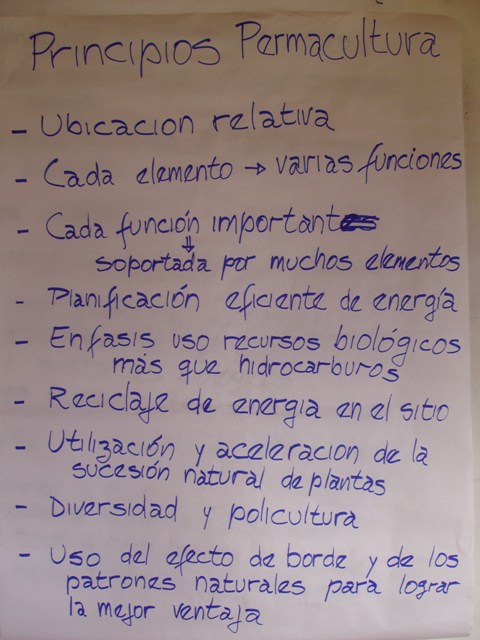 Principios Permacultura
- Ubicacion relativa
- Cada elemento → varias funciones
- Cada función important
⇓
soportada por muchos elementos
- Planificación eficiente de energía
- Enfasis uso recursos biológicos
más que hidrocarburos
- Reciclaje de energia en el sitio
- Utilización y aceleracion de la
sucesión natural de plantas
- Diversidad y policultura
- Uso del efecto de borde y de los
patrones naturales para lograr
la mejor ventaja